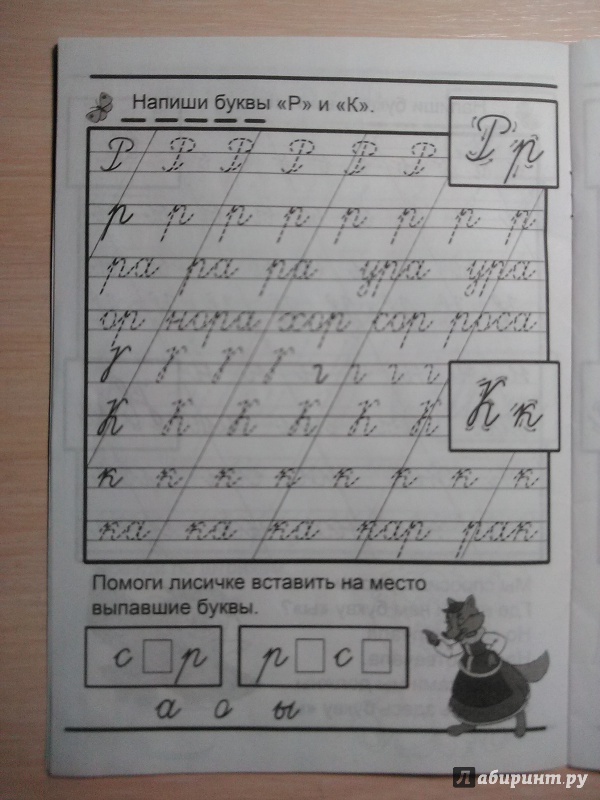 Напиши буквы «Р» и «К».
Р Р Р Р Р Р
Р р
р р р р р р р р
ра ра ра ура ура
ор нора хор сор роса
К К К К К К
К к
к к к к к к к к
ка ка ка кар рак
Помоги лисичке вставить на место
выпавшие буквы.
с р р с
а о ы
Лабиринт.ру